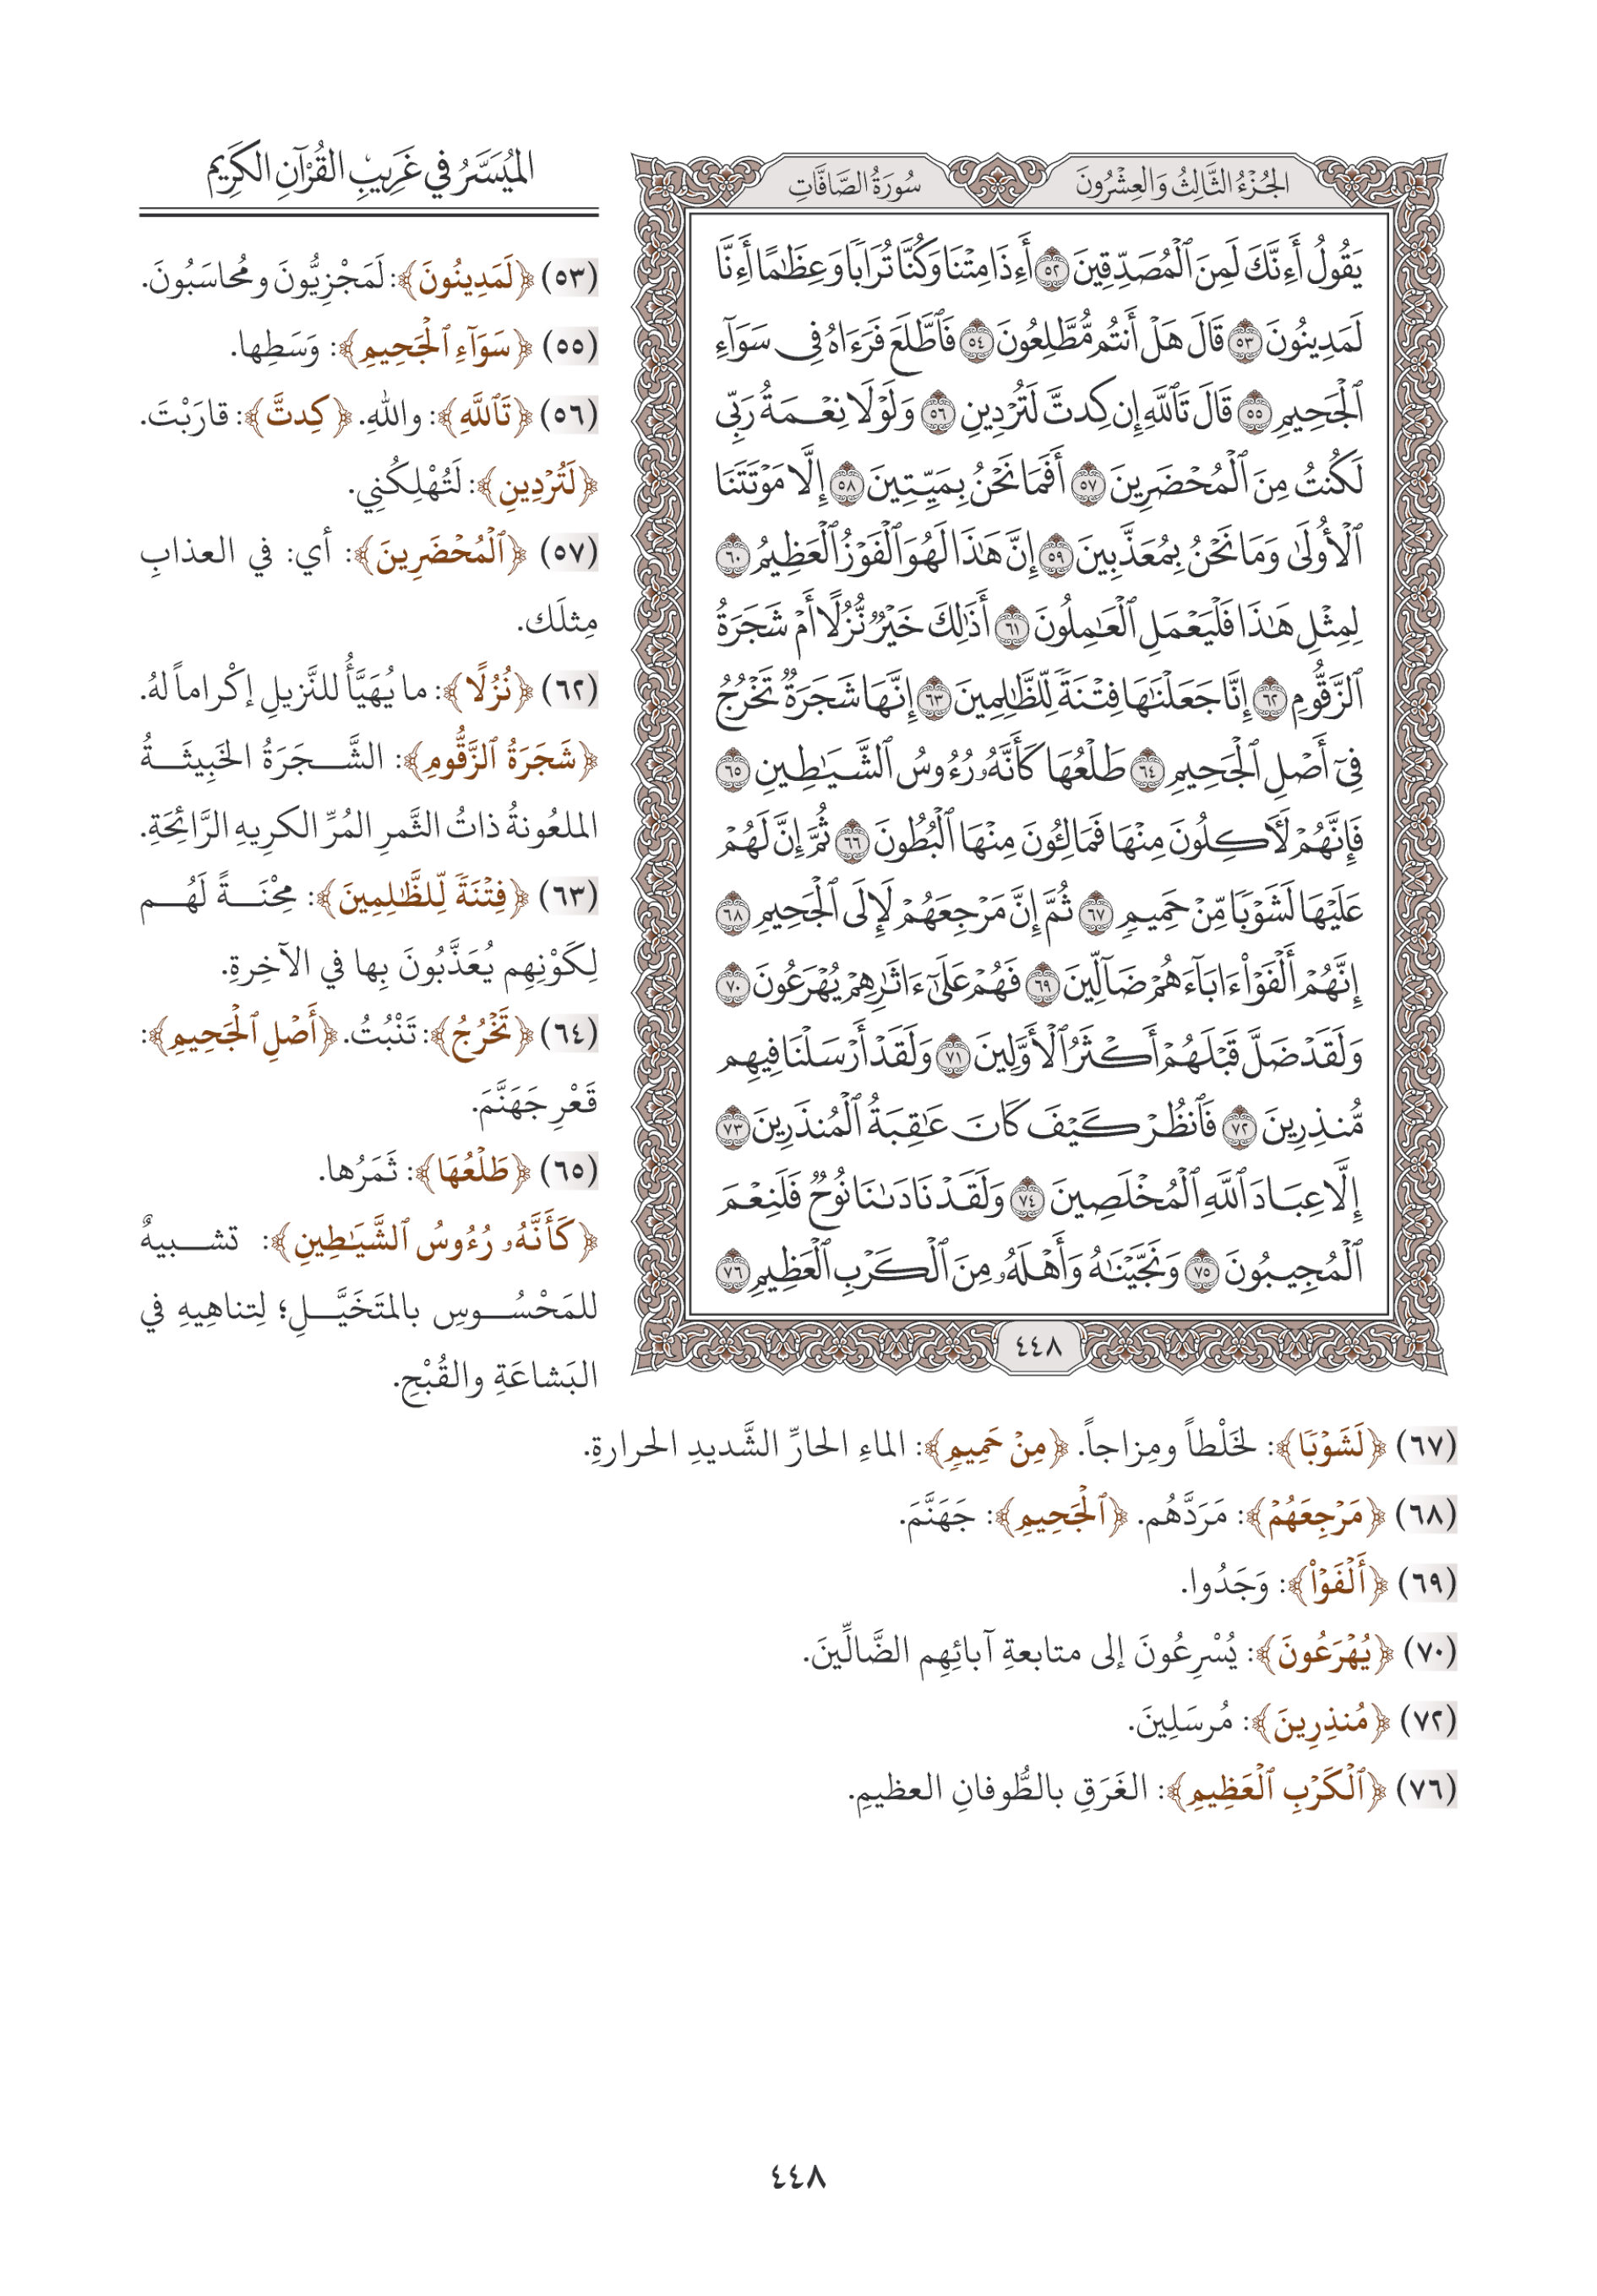 الجُزْءُ الثَّالِثُ وَالعِشْرُونَ
سُورَةُ الصَّافَّاتِ
يَقُولُ أَءِنَّكَ لَمِنَ ٱلۡمُصَدِّقِينَ ٥٢ أَءِذَا مِتۡنَا وَكُنَّا تُرَابٗا وَعِظَٰمًا أَءِنَّا
لَمَدِينُونَ ٥٣ قَالَ هَلۡ أَنتُم مُّطَّلِعُونَ ٥٤ فَٱطَّلَعَ فَرَءَاهُ فِي سَوَآءِ
ٱلۡجَحِيمِ ٥٥ قَالَ تَٱللَّهِ إِن كِدتَّ لَتُرۡدِينِ ٥٦ وَلَوۡلَا نِعۡمَةُ رَبِّي
لَكُنتُ مِنَ ٱلۡمُحۡضَرِينَ ٥٧ أَفَمَا نَحۡنُ بِمَيِّتِينَ ٥٨ إِلَّا مَوۡتَتَنَا
ٱلۡأُولَىٰ وَمَا نَحۡنُ بِمُعَذَّبِينَ ٥٩ إِنَّ هَٰذَا لَهُوَ ٱلۡفَوۡزُ ٱلۡعَظِيمُ ٦٠
لِمِثۡلِ هَٰذَا فَلۡيَعۡمَلِ ٱلۡعَٰمِلُونَ ٦١ أَذَٰلِكَ خَيۡرٞ نُّزُلًا أَمۡ شَجَرَةُ
ٱلزَّقُّومِ ٦٢ إِنَّا جَعَلۡنَٰهَا فِتۡنَةٗ لِّلظَّٰلِمِينَ ٦٣ إِنَّهَا شَجَرَةٞ تَخۡرُجُ
فِيٓ أَصۡلِ ٱلۡجَحِيمِ ٦٤ طَلۡعُهَا كَأَنَّهُۥ رُءُوسُ ٱلشَّيَٰطِينِ ٦٥
فَإِنَّهُمۡ لَأٓكِلُونَ مِنۡهَا فَمَالِـُٔونَ مِنۡهَا ٱلۡبُطُونَ ٦٦ ثُمَّ إِنَّ لَهُمۡ
عَلَيۡهَا لَشَوۡبٗا مِّنۡ حَمِيمٖ ٦٧ ثُمَّ إِنَّ مَرۡجِعَهُمۡ لَإِلَى ٱلۡجَحِيمِ ٦٨
إِنَّهُمۡ أَلۡفَوۡاْ ءَابَآءَهُمۡ ضَآلِّينَ ٦٩ فَهُمۡ عَلَىٰٓ ءَاثَٰرِهِمۡ يُهۡرَعُونَ ٧٠
وَلَقَدۡ ضَلَّ قَبۡلَهُمۡ أَكۡثَرُ ٱلۡأَوَّلِينَ ٧١ وَلَقَدۡ أَرۡسَلۡنَا فِيهِم
مُّنذِرِينَ ٧٢ فَٱنظُرۡ كَيۡفَ كَانَ عَٰقِبَةُ ٱلۡمُنذَرِينَ ٧٣
إِلَّا عِبَادَ ٱللَّهِ ٱلۡمُخۡلَصِينَ ٧٤ وَلَقَدۡ نَادَىٰنَا نُوحٞ فَلَنِعۡمَ
ٱلۡمُجِيبُونَ ٧٥ وَنَجَّيۡنَٰهُ وَأَهۡلَهُۥ مِنَ ٱلۡكَرۡبِ ٱلۡعَظِيمِ ٧٦
٤٤٨
المُيَسَّرُ في غَرِيبِ القُرْآنِ الكَرِيم
(٥٣) ﴿لَمَدِينُونَ﴾: لَمَجْزِيُّونَ ومُحاسَبُونَ.
(٥٥) ﴿سَوَآءِ ٱلۡجَحِيمِ﴾: وَسَطِها.
(٥٦) ﴿تَٱللَّهِ﴾: واللهِ. ﴿كِدتَّ﴾: قارَبْتَ.
﴿لَتُرۡدِينِ﴾: لَتُهْلِكُنِي.
(٥٧) ﴿ٱلۡمُحۡضَرِينَ﴾: أي: في العذابِ
مِثلَك.
(٦٢) ﴿نُزُلًا﴾: ما يُهَيَّأُ للنَّزيلِ إكْراماً لهُ.
﴿شَجَرَةُ ٱلزَّقُّومِ﴾: الشَّـجَرَةُ الخَبِيثَـةُ
الملعُونةُ ذاتُ الثَّمرِ المُرِّ الكرِيهِ الرَّائِحَةِ.
(٦٣) ﴿فِتۡنَةٗ لِّلظَّٰلِمِينَ﴾: مِحْنَـةً لَهُـم
لِكَوْنِهِم يُعَذَّبُونَ بِها في الآخِرةِ.
(٦٤) ﴿تَخۡرُجُ﴾: تَنْبُتُ. ﴿أَصۡلِ ٱلۡجَحِيمِ﴾:
قَعْرِ جَهَنَّمَ.
(٦٥) ﴿طَلۡعُهَا﴾: ثَمَرُها.
﴿كَأَنَّهُۥ رُءُوسُ ٱلشَّيَٰطِينِ﴾: تشـبيهٌ
للمَحْسُـوسِ بالمتَخَيَّـلِ؛ لِتناهِيهِ في
البَشاعَةِ والقُبْحِ.
(٦٧) ﴿لَشَوۡبٗا﴾: لخَلْطاً ومِزاجاً. ﴿مِنۡ حَمِيمٖ﴾: الماءِ الحارِّ الشَّديدِ الحرارةِ.
(٦٨) ﴿مَرۡجِعَهُمۡ﴾: مَرَدَّهُم. ﴿ٱلۡجَحِيمِ﴾: جَهَنَّمَ.
(٦٩) ﴿أَلۡفَوۡاْ﴾: وَجَدُوا.
(٧٠) ﴿يُهۡرَعُونَ﴾: يُسْرِعُونَ إلى متابعةِ آبائِهِم الضَّالِّينَ.
(٧٢) ﴿مُنذِرِينَ﴾: مُرسَلِينَ.
(٧٦) ﴿ٱلۡكَرۡبِ ٱلۡعَظِيمِ﴾: الغَرَقِ بالطُّوفانِ العظيمِ.
٤٤٨